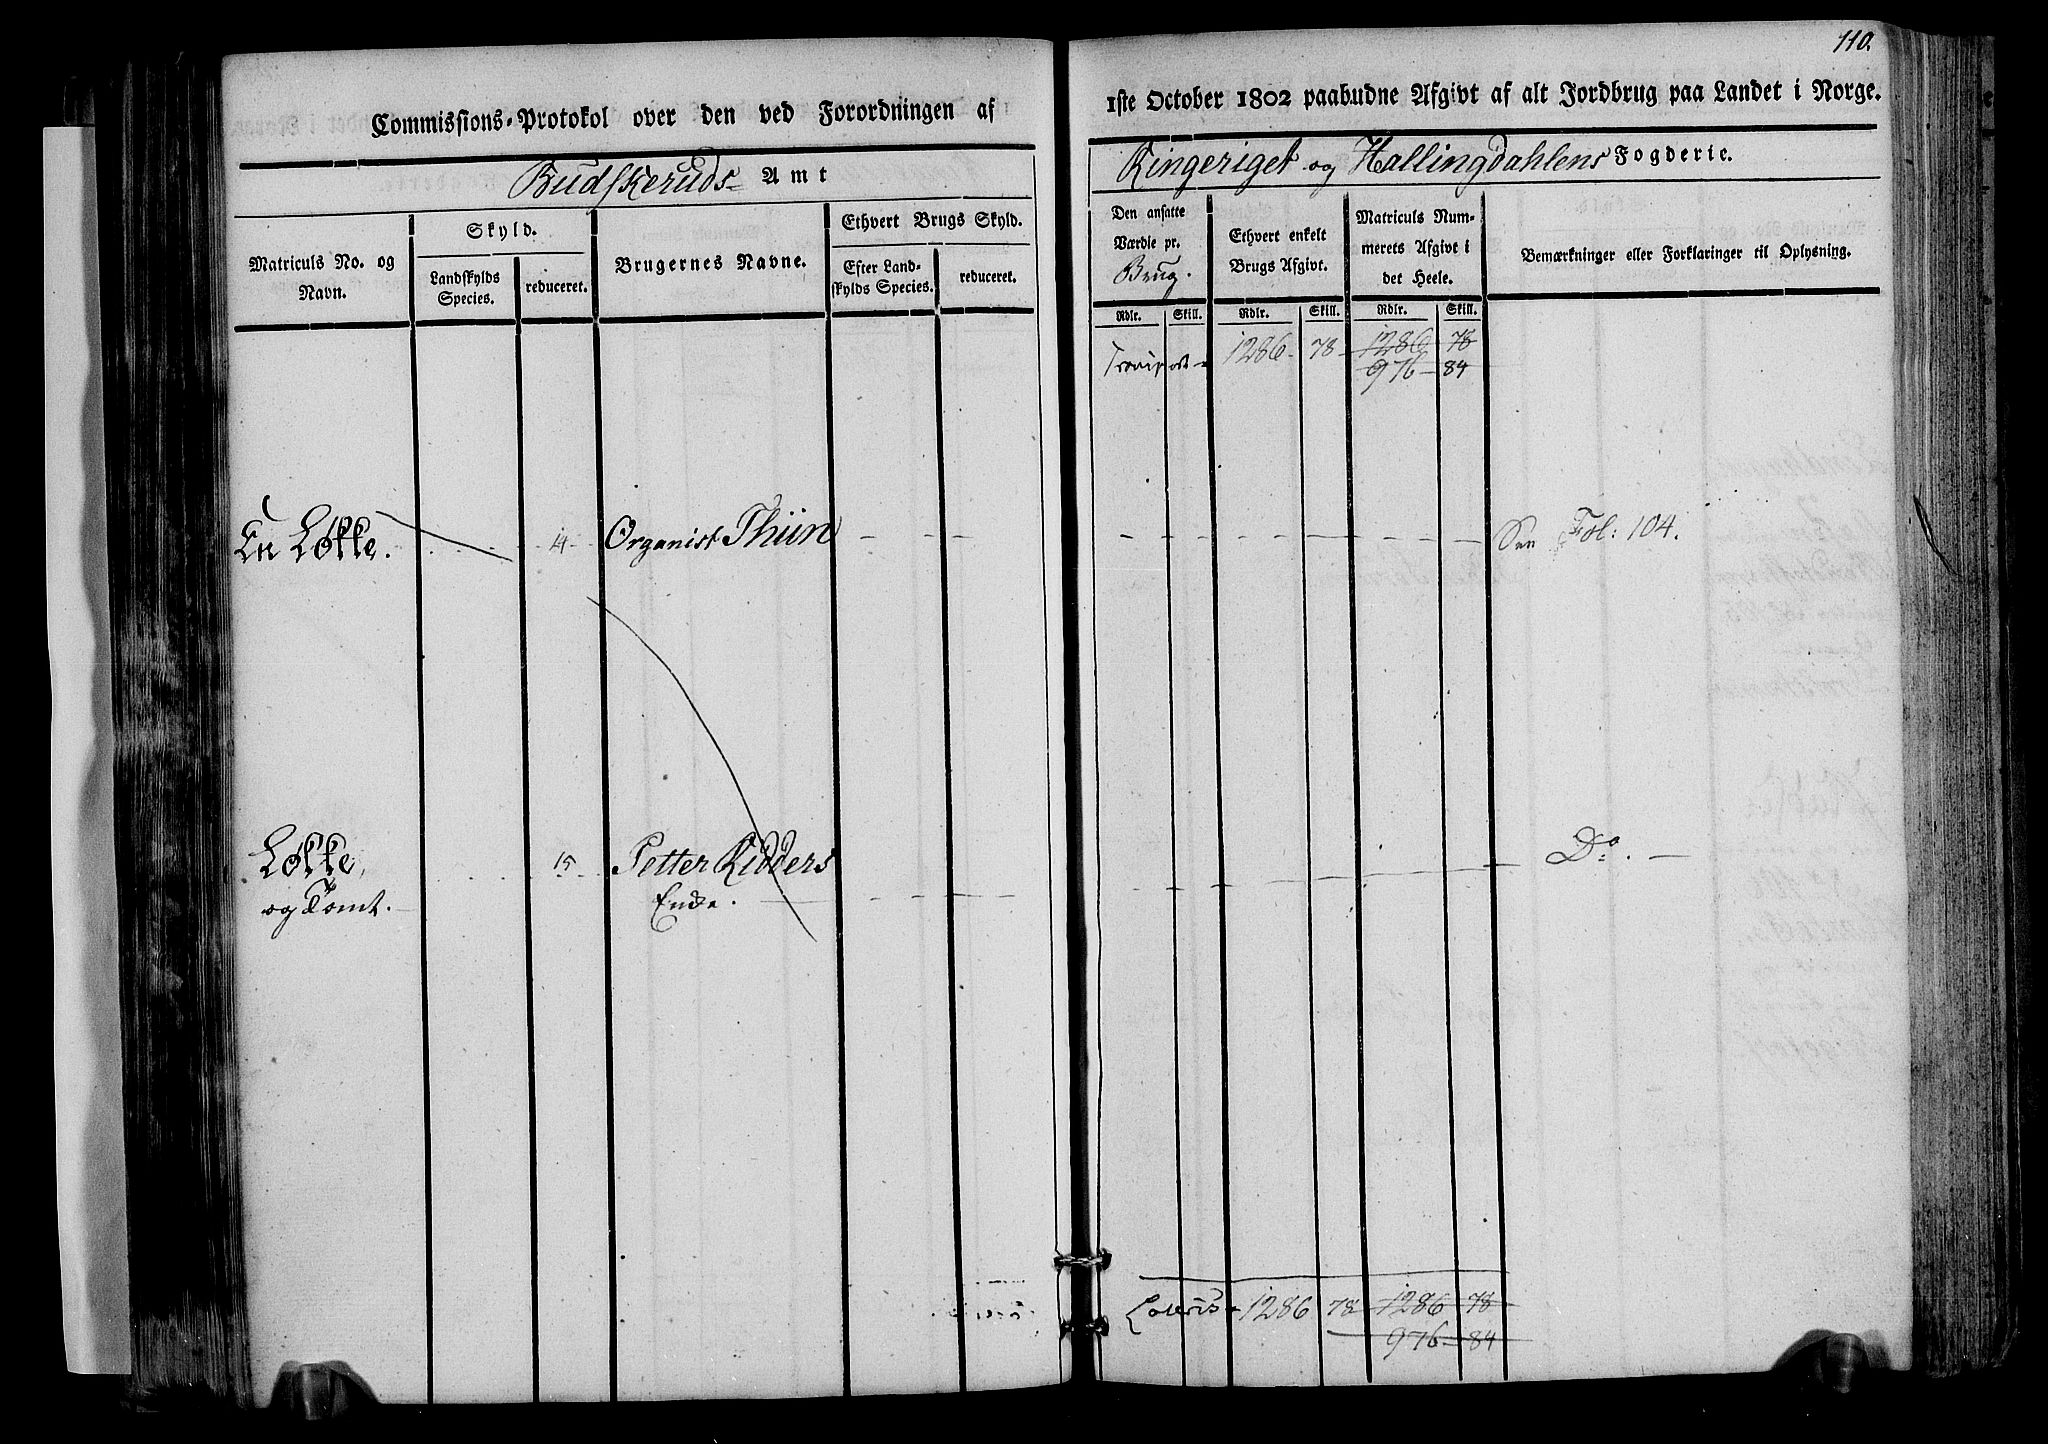 110.
Commissions-Protokol over den ved Forordningen af
1ste October 1802 paabudne Afgivt af alt Jordbrug paa Landet i Norge.
Budskeruds Amt
Ringeriget og Hallingdahlens Fogderie.
Matriculs No. og Navn.
Skyld.
Landskylds Species.
reduceret.
Brugernes Navne.
Ethvert Brugs Skyld.
Efter Landskylds Species.
reduceret.
Den ansatte Værdie pr. Brug.
Ethvert enkelt Brugs Afgivt.
Matriculs Nummerets Afgivt i det Heele.
Bemærkninger eller Forklaringer til Oplysning.
Rdlr. Skill. Rdlr. Skill. Rdlr. Skill.
Transport 1286 78 1286 78
976 84
En Løkke. 14 Organist Thiin See Fol: 104.
Løkke, 15 Petter Ridders Do.
og Tomt. Enke.
Lateris 1286 78 1286 78
976 84